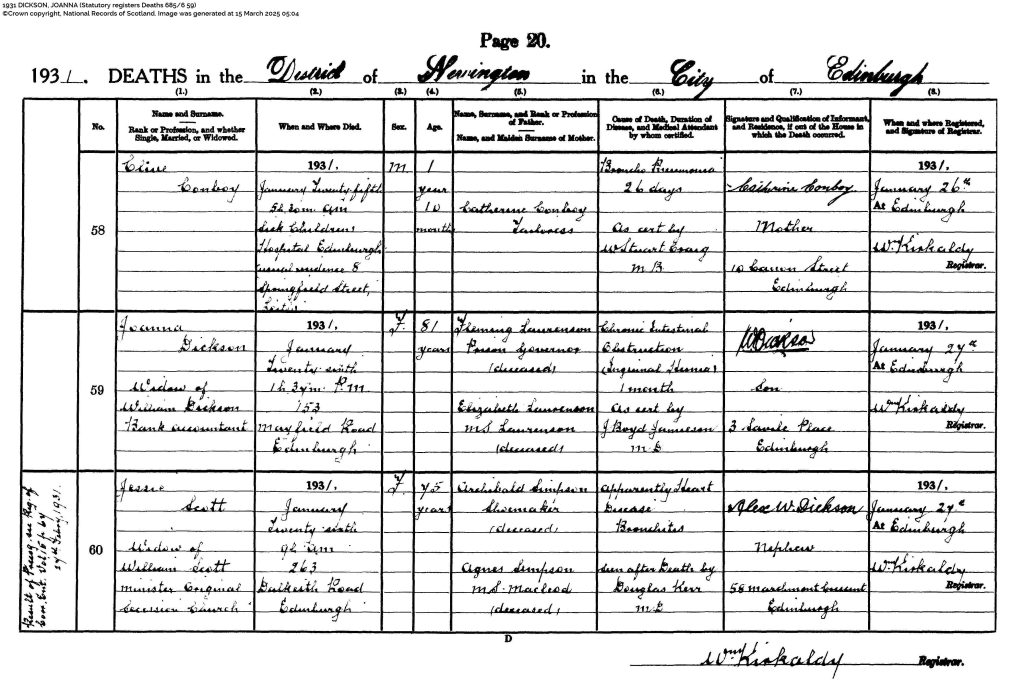 1931 DICKSON, JOANNA (Statutory registers Deaths 685/6 59)
©Crown copyright, National Records of Scotland. Image was generated at 15 March 2025 05:04
Page 20.
1931. DEATHS in the District of Newington in the City of Edinburgh
(1.) (2.) (3.) (4.) (5.) (6.) (7.) (8.)
No.
Name and Surname.
Rank or Profession, and whether
Single, Married, or Widowed.
When and Where Died.
Sex.
Age.
Name, Surname, and Rank or Profession
of Father.
Name, and Maiden Surname of Mother.
Cause of Death, Duration of
Disease, and Medical Attendant
by whom certified.
Signature and Qualification of Informant,
and Residence, if out of the House in
which the Death occurred.
When and where Registered,
and Signature of Registrar.
58
Conboy
1931.
January Twenty fifth
5h. 20m. am
Sick Childrens
Hospital Edinburgh
usual residence 8
Springfield Street,
Leith
M
1
year
10
months
Catherine Conboy
Broncho Pneumonia
26 days
As cert by
W Stuart Craig
M.B.
Cathrine Conboy
Mother
10 Canon Street
Edinburgh
1931.
January 26th
At Edinburgh
Wm Kirkaldy
Registrar.
59
Joanna
Dickson
Widow of
William Dickson
Bank accountant
1931.
January
Twenty sixth
1h. 37m. P.m.
153
Mayfield Road
Edinburgh
F.
81
years
Fleming Laurenson
Prison Governor
(deceased)
Elizabeth Laurenson
M.S. Laurenson
(deceased)
Chronic Intestinal
Obstruction
(Inguinal Hernia)
1 month
As cert by
J Boyd Jamieson
M.D.
W Dickson
Son
3 Savile Place
Edinburgh
1931.
January 27th
At Edinburgh
Wm Kirkaldy
Registrar.
60
Jessie
Scott
Widow of
William Scott
Minister Original
Secession Church
1931.
January
Twenty sixth
9h. am
263
Dalkeith Road
Edinburgh
F.
75
years
Archibald Simpson
Shoemaker
(deceased)
Agnes Simpson
M.S. Macleod
(deceased)
Apparently Heart
Disease
Bronchitis
Seen after Death by
Douglas Kerr
M.D.
Alex W. Dickson
Nephew
58 Marchmont Crescent
Edinburgh
1931.
January 27th
At Edinburgh
Wm Kirkaldy
Registrar.
Result of Precog see Reg. of
Cor. Ent. Vol
Feby. 1931.
D
Wm Kirkaldy Registrar.